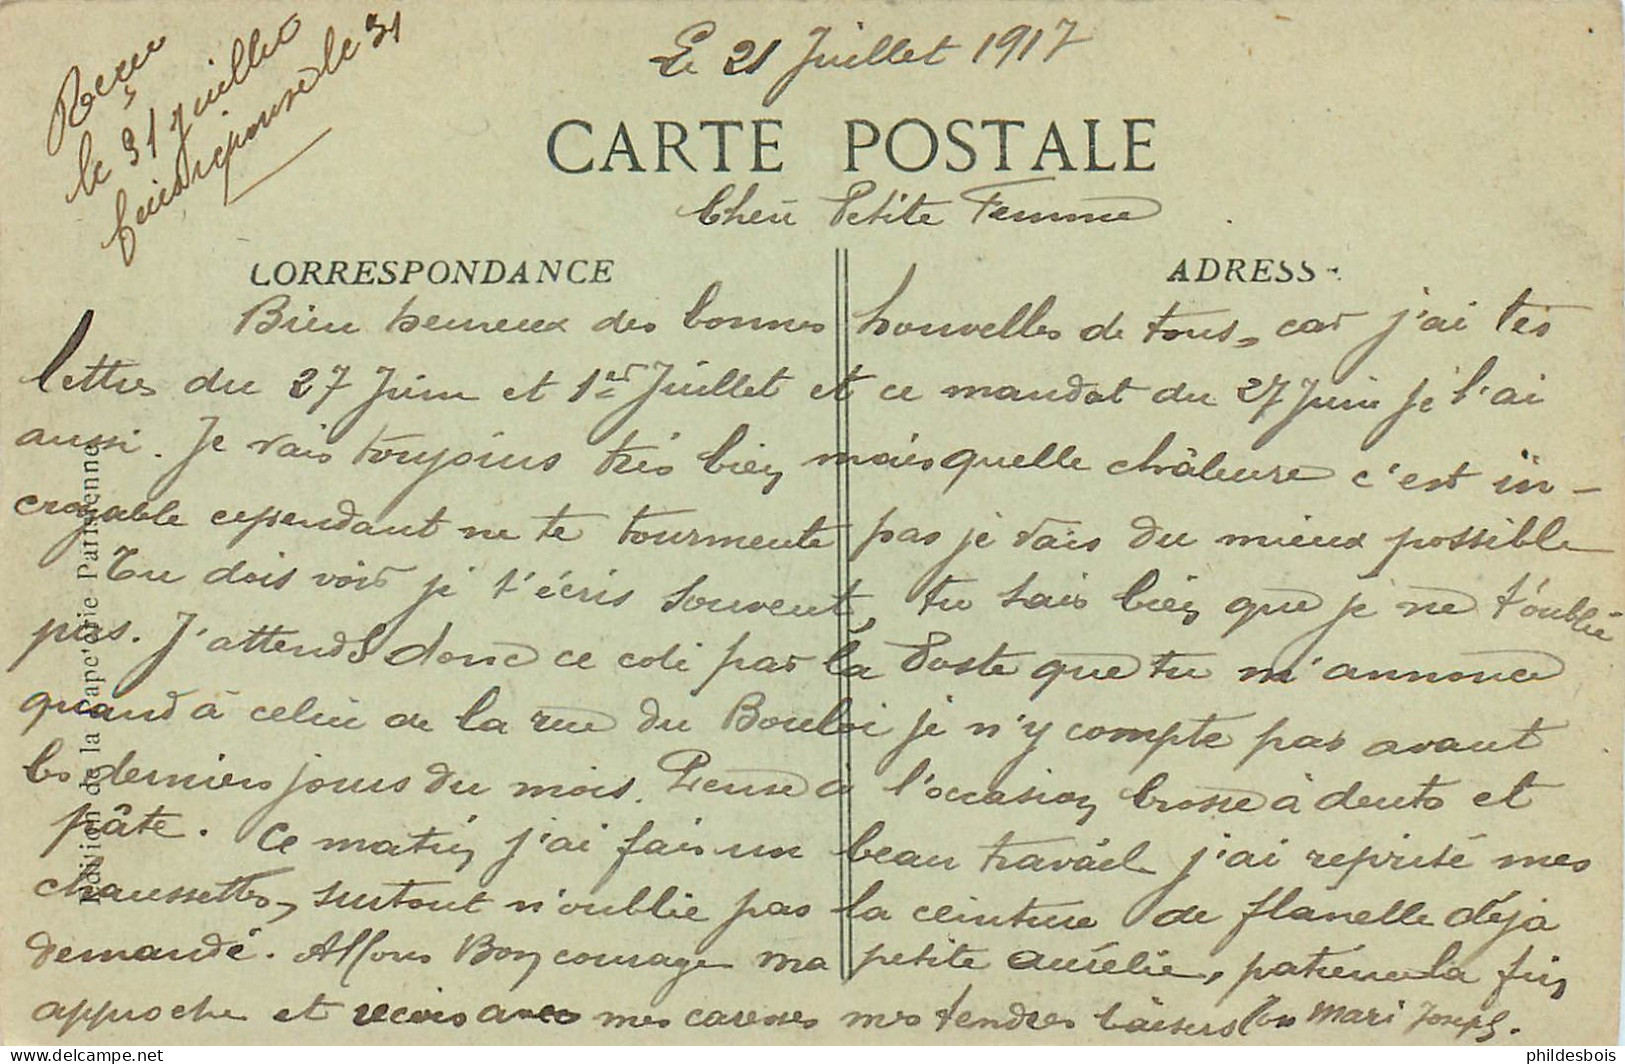 Reçu
le 31 Juillet
fais réponse le 31
Le 21 Juillet 1917
CARTE POSTALE
Cheri Petite Femme
CORRESPONDANCE
ADRESS
Bien heureux des bonnes nouvelles de tous, car j'ai tes
lettres du 27 Juin et 1er Juillet et ce mandat du 27 Juin je l'ai
aussi. Je vais toujours très bien mais quelle châleure c'est in-
croyable cependant ne te tourmente pas je vais du mieux possible
Tu dois voir je t'écris souvent, tu sais bien que je ne t'oublie
pas. J'attends donc ce coli par la Poste que tu m'annonce
quand à celui de la rue du Bouloi je n'y compte pas avant
les derniers jours du mois. Pense à l'occasion brosse à dents et
pâte. Ce matin j'ai fais un beau travail j'ai reprisé mes
chaussettes, surtout n'oublie pas la ceinture de flanelle déjà
demandé. Allons Bon courage ma petite Aurélie, patience la fin
approche et recois avec mes caresses mes tendres baisers ton Mari Joseph.
Edition de la Papeterie Parisienne
phildesbois